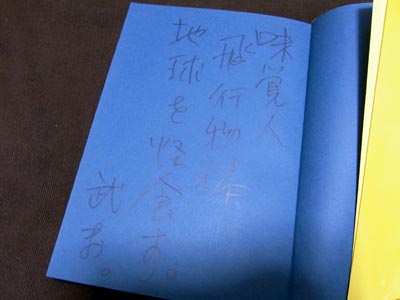 味覚人
飛行物体
地球を怪食す。
武お。